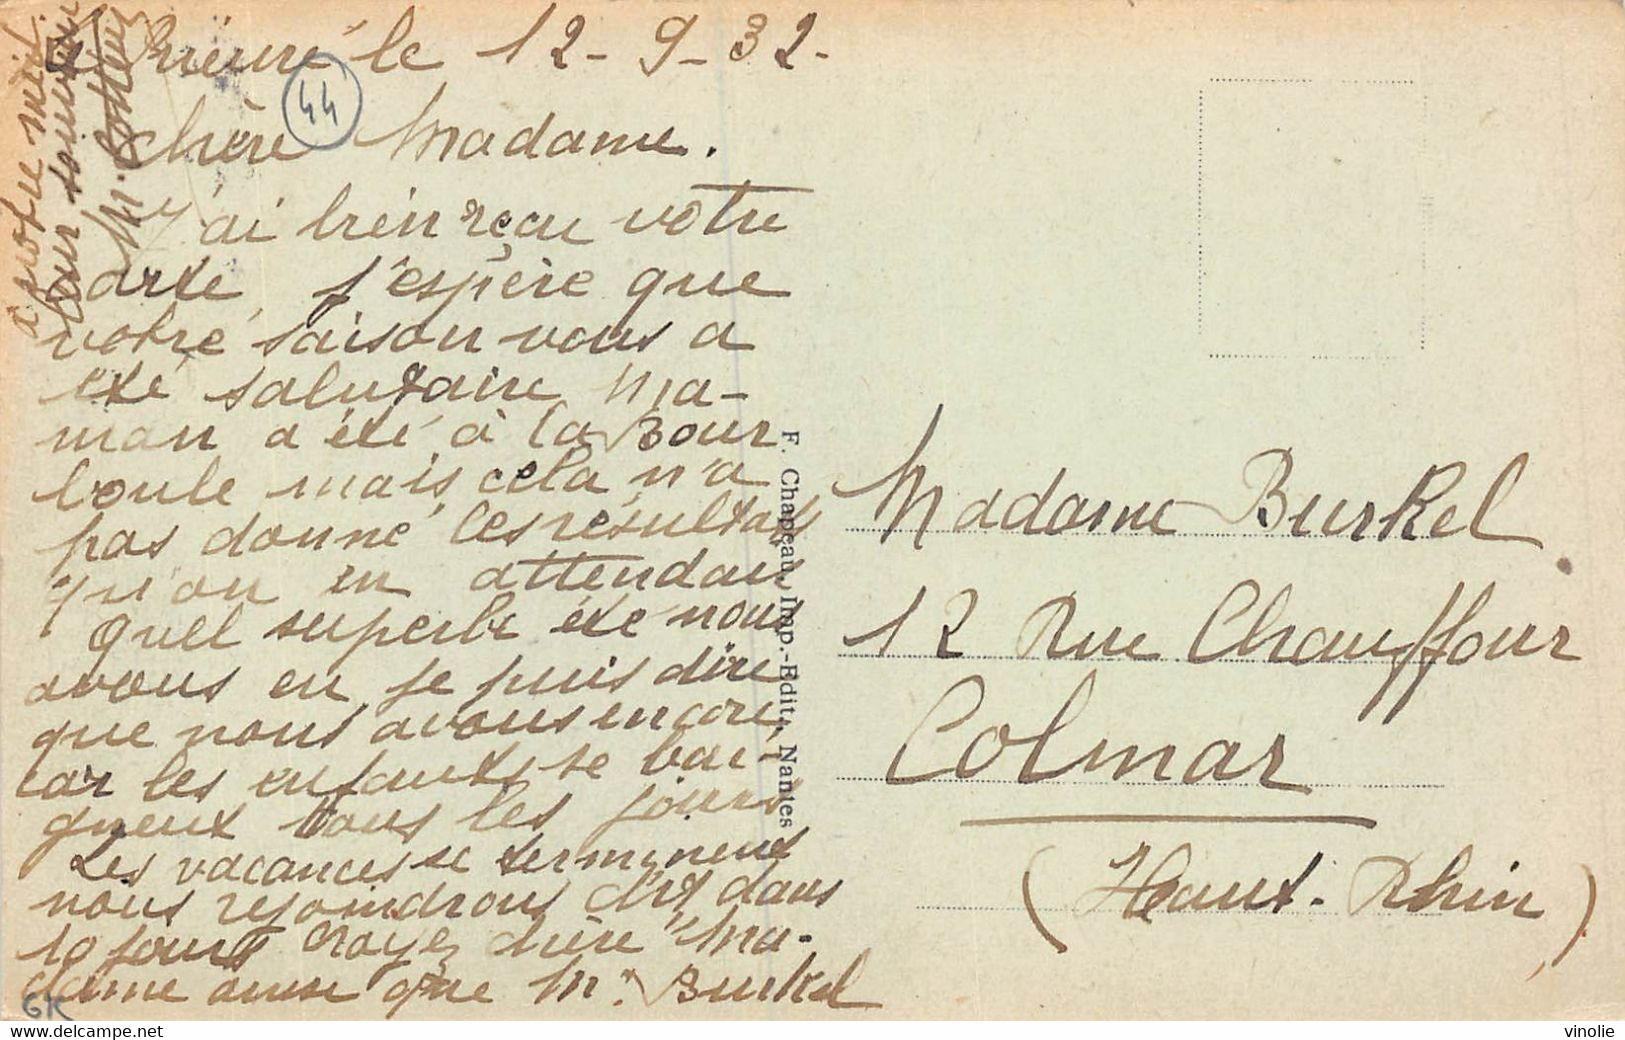 Prieuré le 12-9-32-
44
chère Madame.
J'ai bien reçu votre
carte, j'espère que
votre saison vous a
été salutaire Ma-
man a été à la Bour
boule mais cela n'a
pas donné les résultats
qu'on en attendait
Quel superbe été nous
avons eu, je puis dire
que nous avons encore,
car les enfants se bai-
gnent tous les jours
Les vacances se terminent
nous rejoindrons dans
10 jours Croyez chère Ma-
dame ainsi que Mr Burkel
à notre meil.
leur souvenir
M.
GK
F. Chapeau, Imp.-Edit., Nantes
Madame Burkel
12 Rue Chauffour
Colmar
(Haut-Rhin)
www.delcampe.net
vinolie